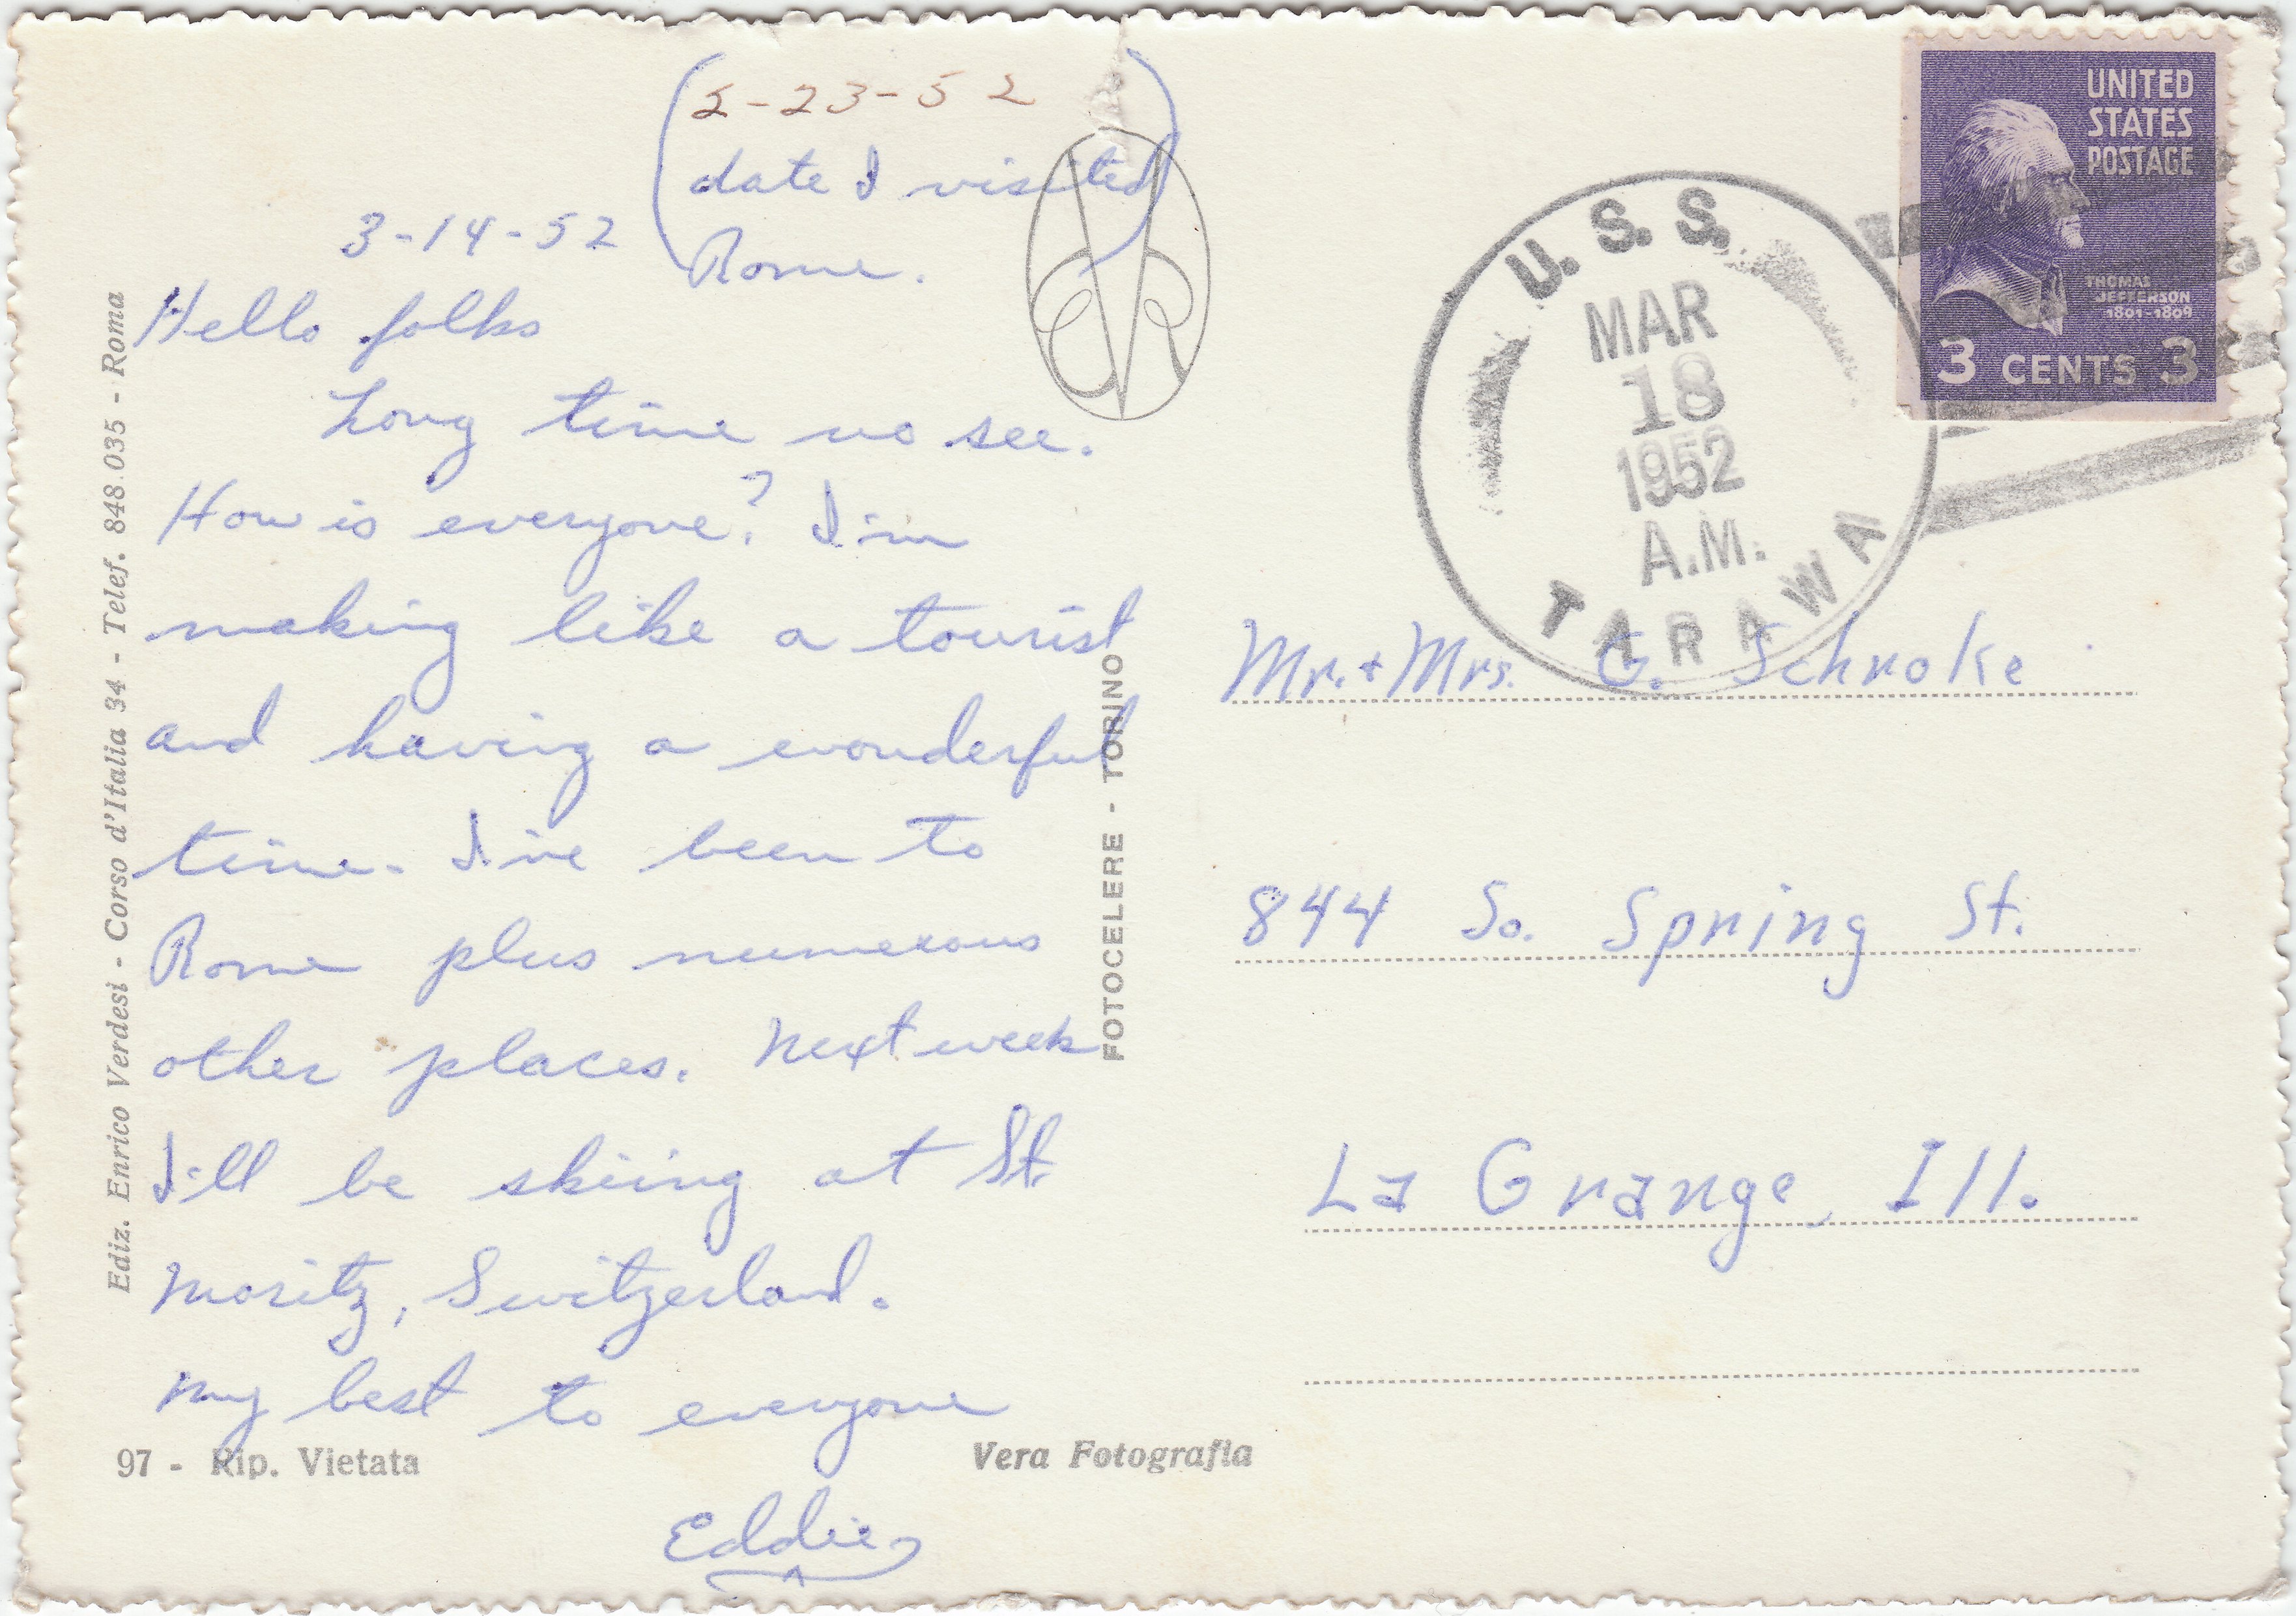 2-23-52
date I visited
Rome.
3-14-52
Hello folks
Long time no see.
How is everyone? I'm
making like a tourist
and having a wonderful
time. I've been to
Rome plus numerous
other places. Next week
I'll be skiing at St.
Moritz, Switzerland.
My best to everyone
Eddie
Ediz. Enrico Verdesi - Corso d'Italia 34 - Telef. 848.035 - Roma
97 - Rip. Vietata
Vera Fotografia
FOTOCELERE - TORINO
U.S.S.
MAR
18
1952
A.M.
TARAWA
UNITED
STATES
POSTAGE
THOMAS
JEFFERSON
1801-1809
3 CENTS 3
Mr. + Mrs. G. Schroke
844 So. Spring St.
La Grange, Ill.